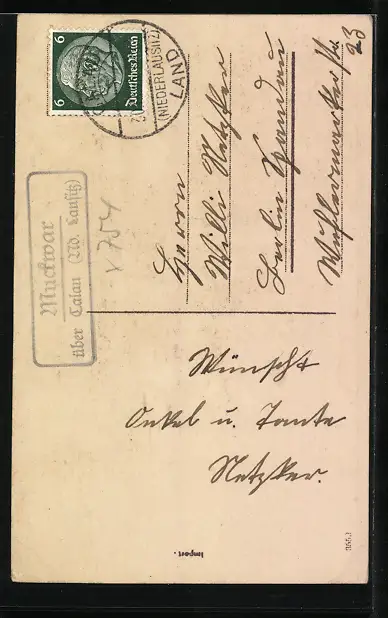 6 6
Deutsches Reich
(NIEDERLAUSITZ)
LAND
Muckwar
über Calau (Nd. Lausitz)
v 754
Herrn
Willi Netzker
Berlin Spandau
23
Wünscht
Onkel u. Tante
Netzker.
Import.